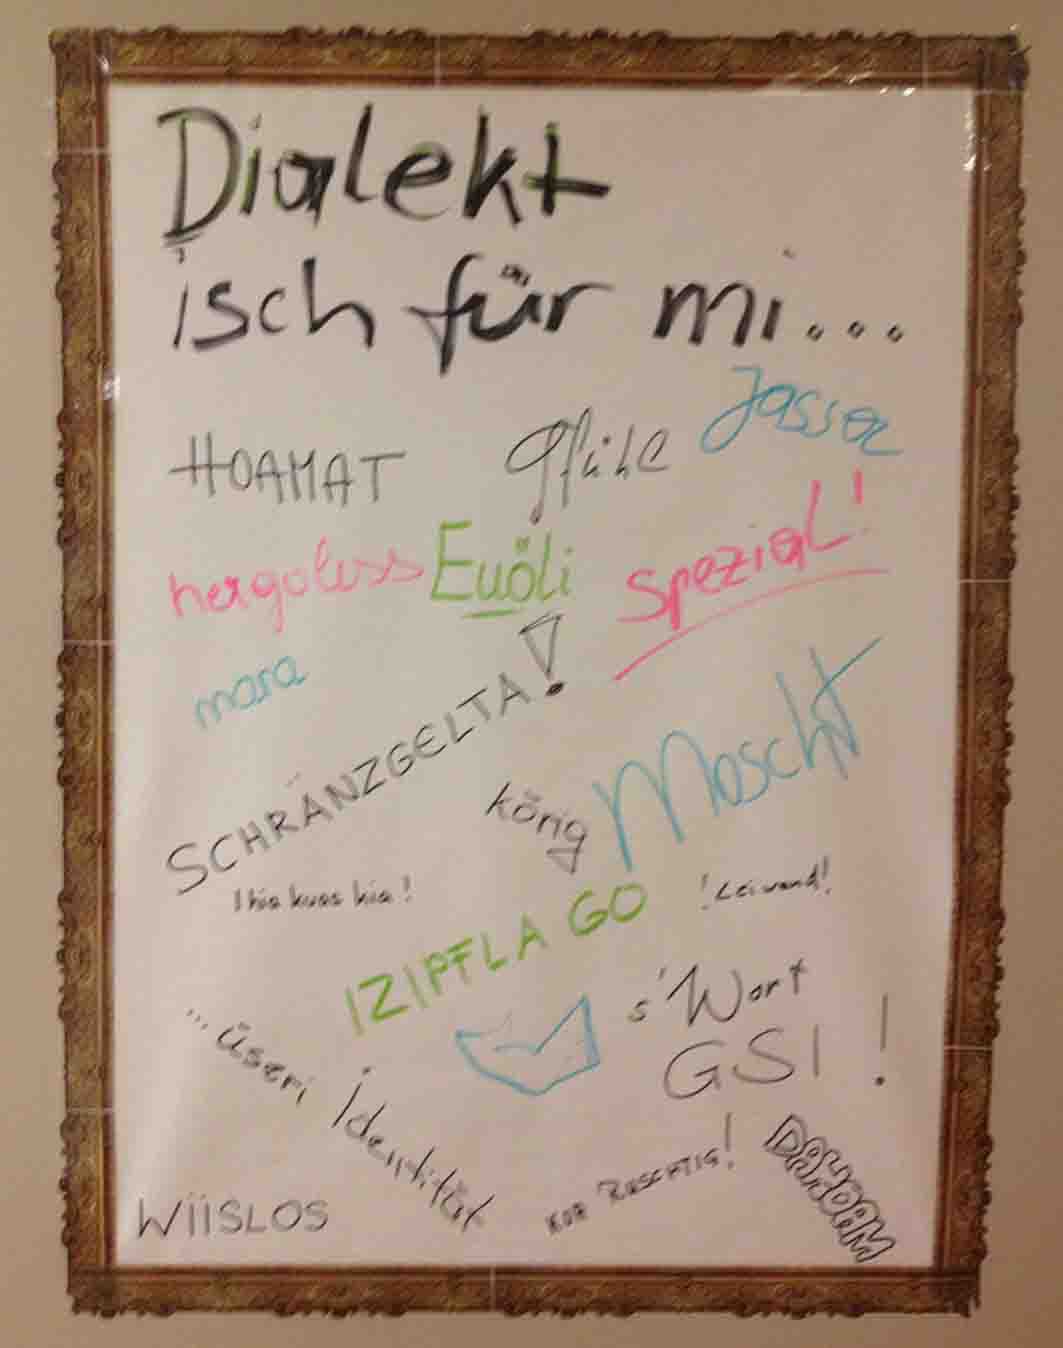 Dialekt
isch für mi...
HOAMAT
gfühle
Jassa
hergoless
Euöli
Spezial!
mara
SCHRÄNZGELTA!
könig
Moscht
I hia kuas hia!
!Leiwand!
IZIPFLA GO
s'Wort
GSI!
...üseri Identität
WIISLOS
KOA RUSCHTIG!
DAHOAM